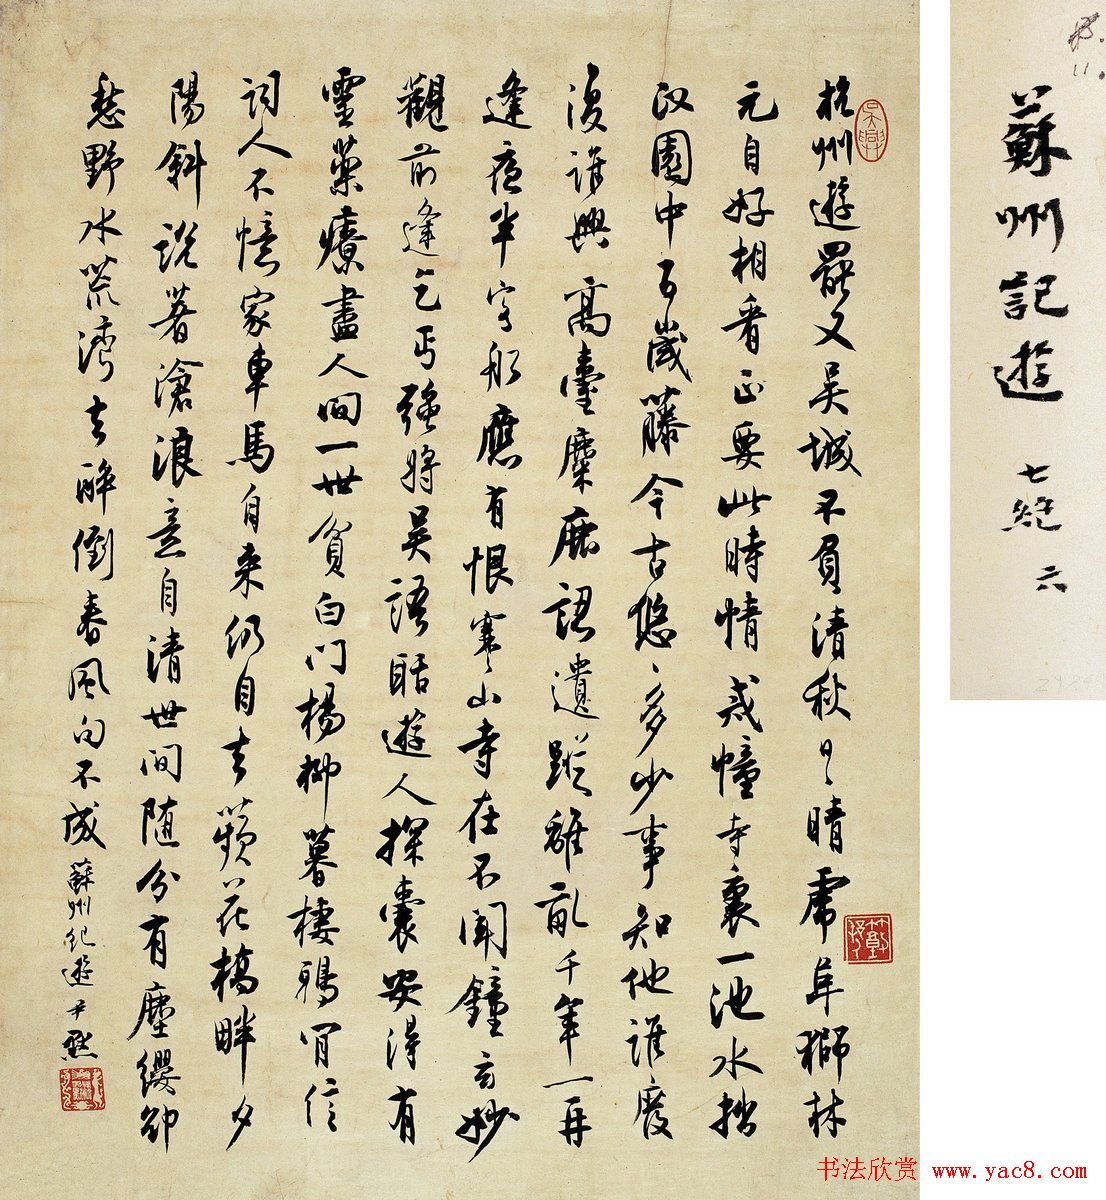 杭州遊罷又吳城不負清秋日〻晴虎阜獅林
元自好相看正要此時情戒幢寺裏一池水拙
政園中百歲藤今古悠〻多少事知他誰廢
復誰興高臺麋鹿認遺蹤離亂千年一再
逢夜半客船應有恨寒山寺在不聞鐘玄妙
觀前逢乞丐強將吳語聒遊人探囊安得有
靈藥療盡人間一世貧白門楊柳暮棲鴉閒信
詞人不憶家車馬自来仍自去蘋花橋畔夕
陽斜說著滄浪意自清世間隨分有塵纓却
愁野水荒灣去醉倒春風句不成蘇州紀遊尹默
吳興
蘇州記遊 七絕 六
书法欣赏 www.yac8.com